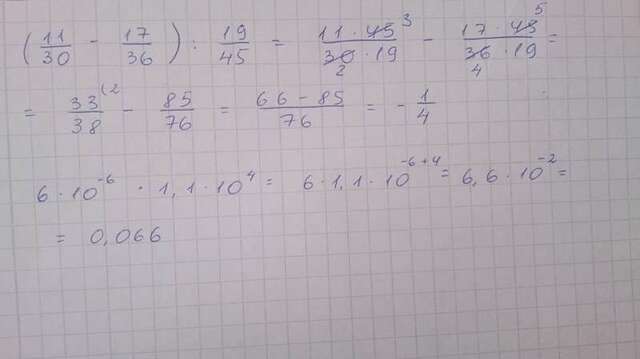 (11/30 - 17/36) : 19/45 = 11·45³/30₂·19 - 17·45⁵/36₄·19 =
= 33⁽²/38 - 85/76 = 66-85/76 = -1/4
6·10⁻⁶ · 1,1·10⁴ = 6·1,1·10⁻⁶⁺⁴ = 6,6·10⁻² =
= 0,066